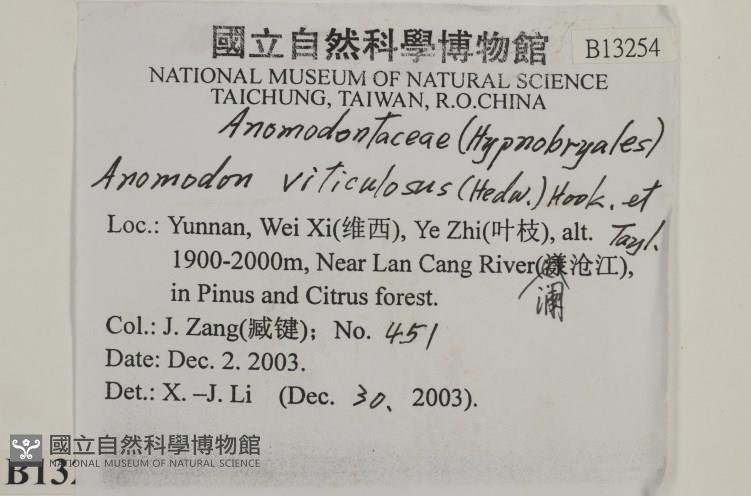 國立自然科學博物館
B13254
NATIONAL MUSEUM OF NATURAL SCIENCE
TAICHUNG, TAIWAN, R.O.CHINA
Anomodontaceae (Hypnobryales)
Anomodon viticulosus (Hedw.) Hook. et
Tayl.
Loc.: Yunnan, Wei Xi(维西), Ye Zhi(叶枝), alt.
1900-2000m, Near Lan Cang River(沧江),
澜
in Pinus and Citrus forest.
Col.: J. Zang(臧键); No. 451
Date: Dec. 2. 2003.
Det.: X. –J. Li (Dec. 30、 2003).
國立自然科學博物館
NATIONAL MUSEUM OF NATURAL SCIENCE